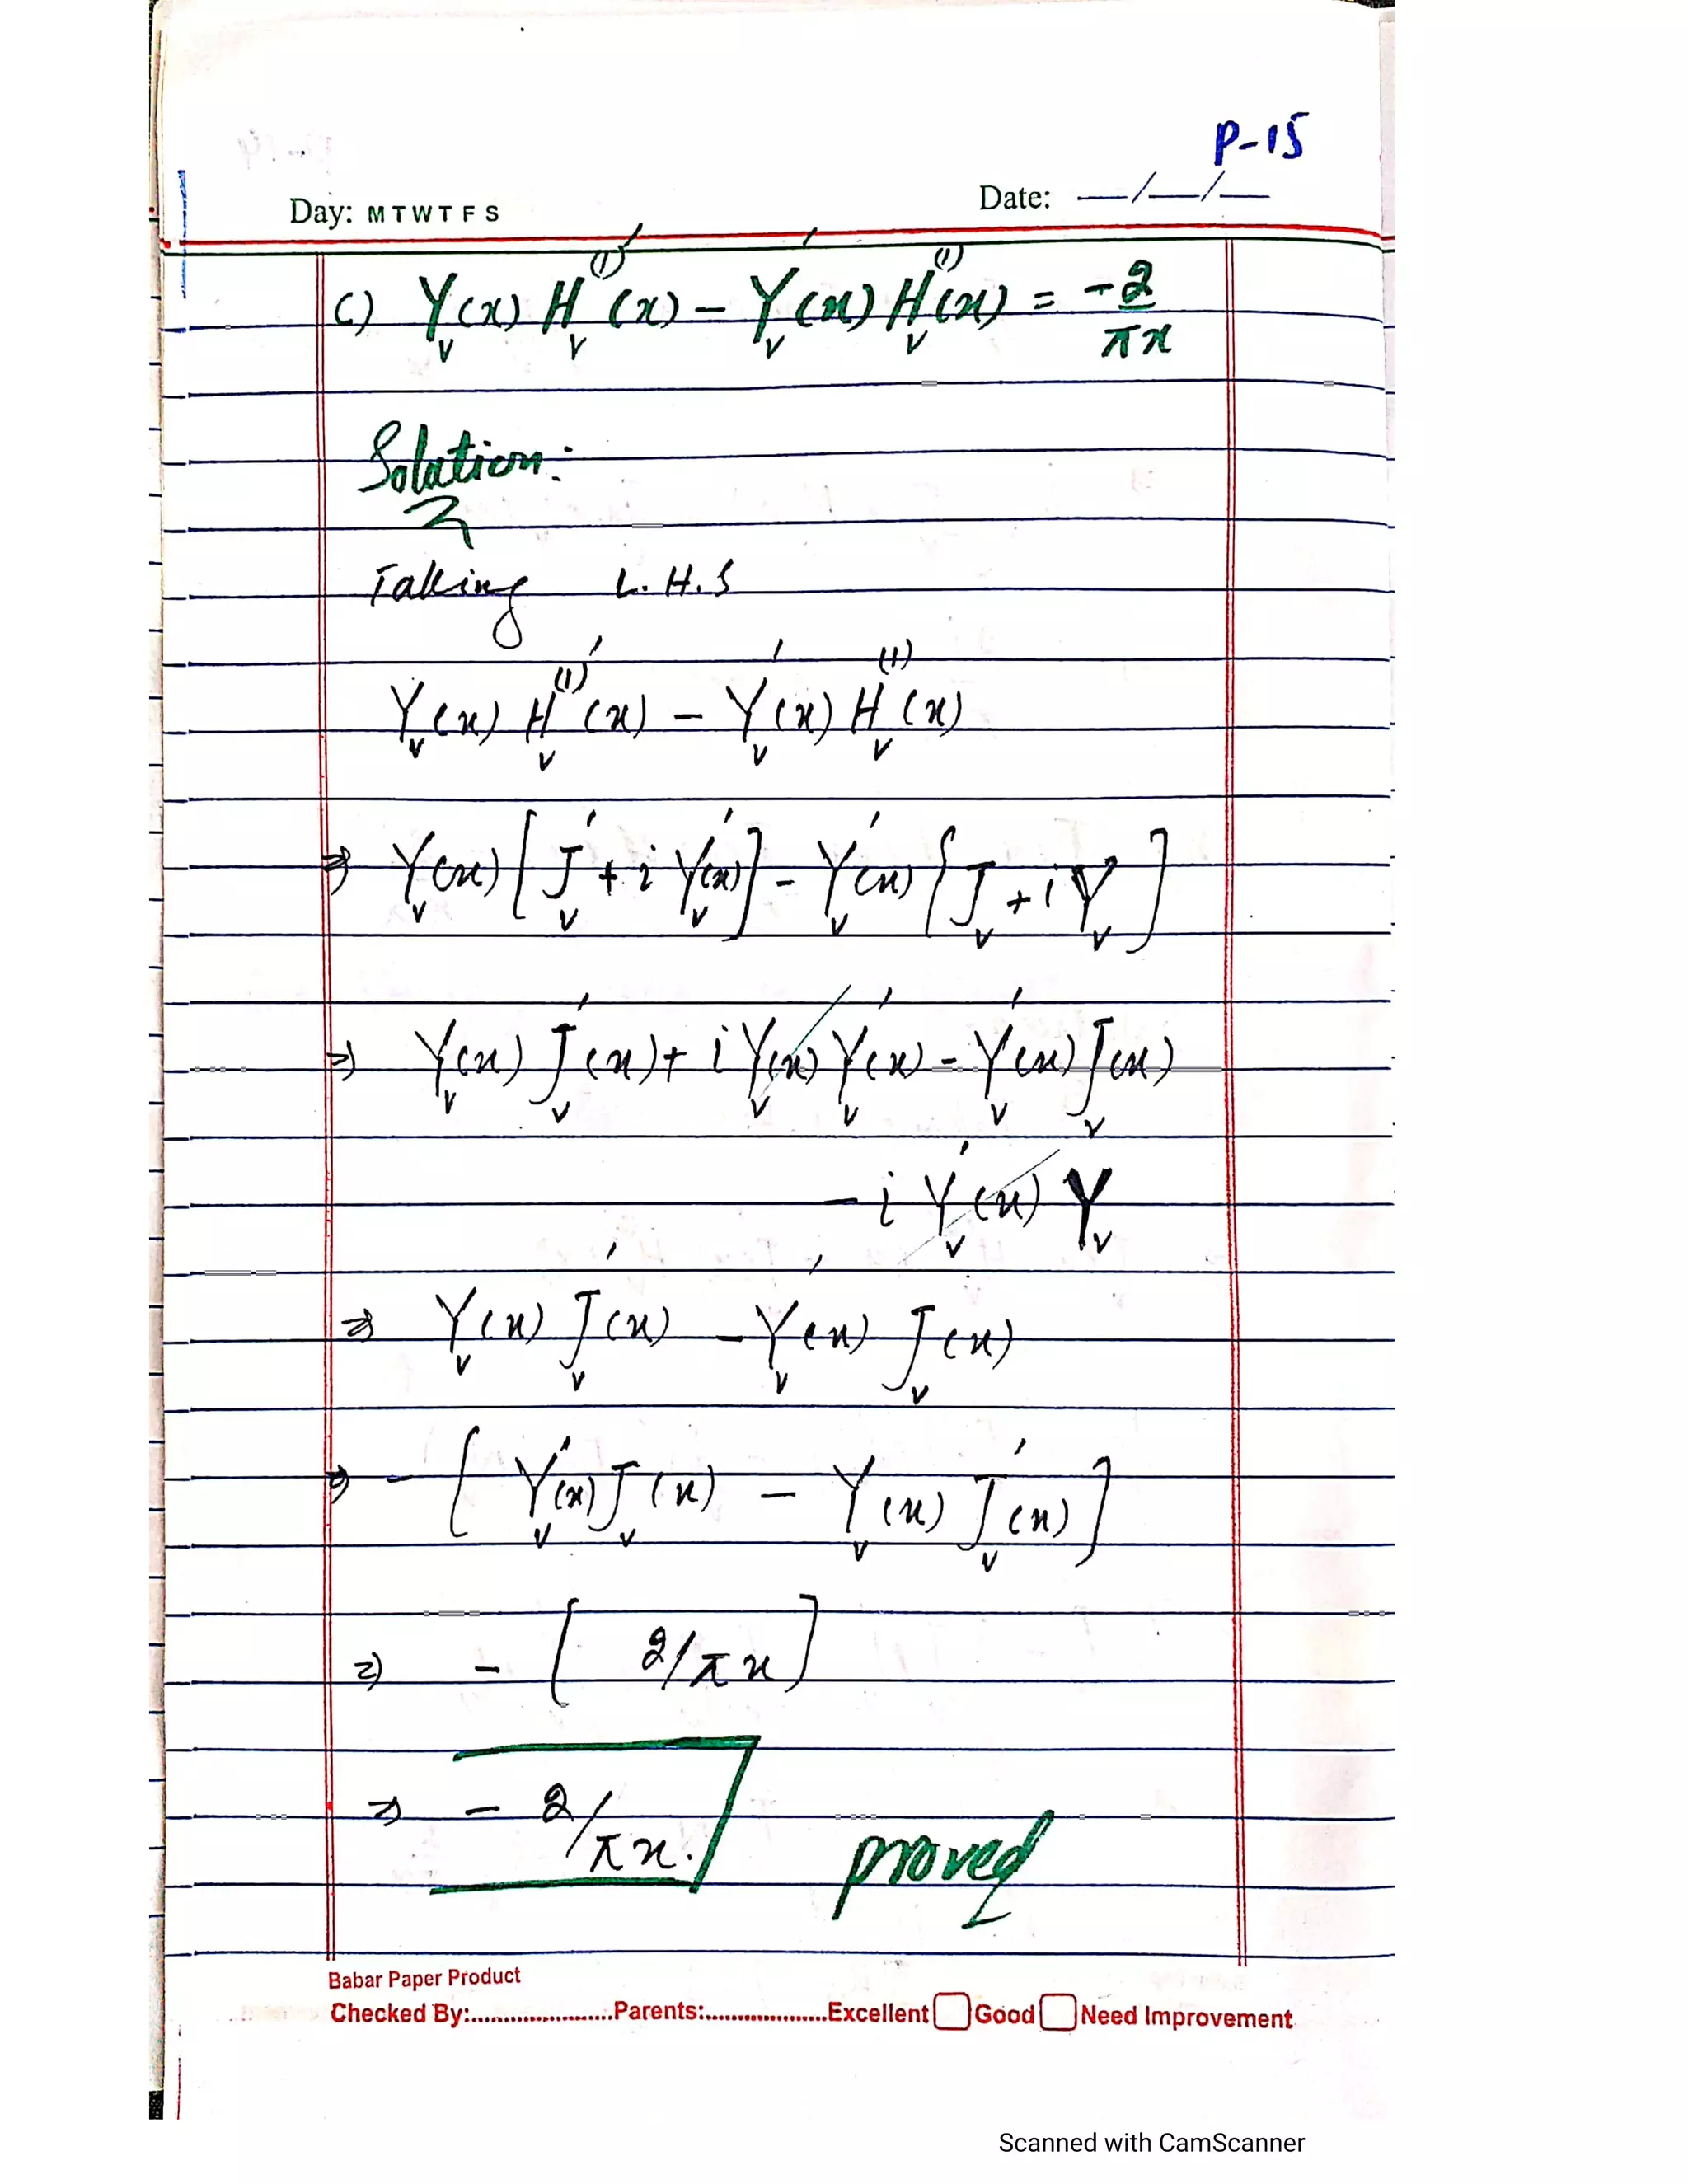 P-15
Day: M T W T F S Date: —/—/—
C) Y_ν(x) H_ν^(1)'(x) - Y_ν'(x) H_ν^(1)(x) = -2/πx
Solution:
Taking L.H.S
Y_ν(x) H_ν^(1)'(x) - Y_ν'(x) H_ν^(1)(x)
⇒ Y_ν(x) [J_ν' + i Y_ν'(x)] - Y_ν'(x) [J_ν + i Y_ν]
⇒ Y_ν(x) J_ν'(x) + i Y_ν(x) Y_ν'(x) - Y_ν'(x) J_ν(x)
- i Y_ν'(x) Y_ν
⇒ Y_ν(x) J_ν'(x) - Y_ν'(x) J_ν(x)
⇒ - [ Y_ν'(x) J_ν(x) - Y_ν(x) J_ν'(x) ]
⇒ - [ 2/πx ]
⇒ - 2/πx. proved
Babar Paper Product
Checked By:........................Parents:.....................Excellent Good Need Improvement
Scanned with CamScanner